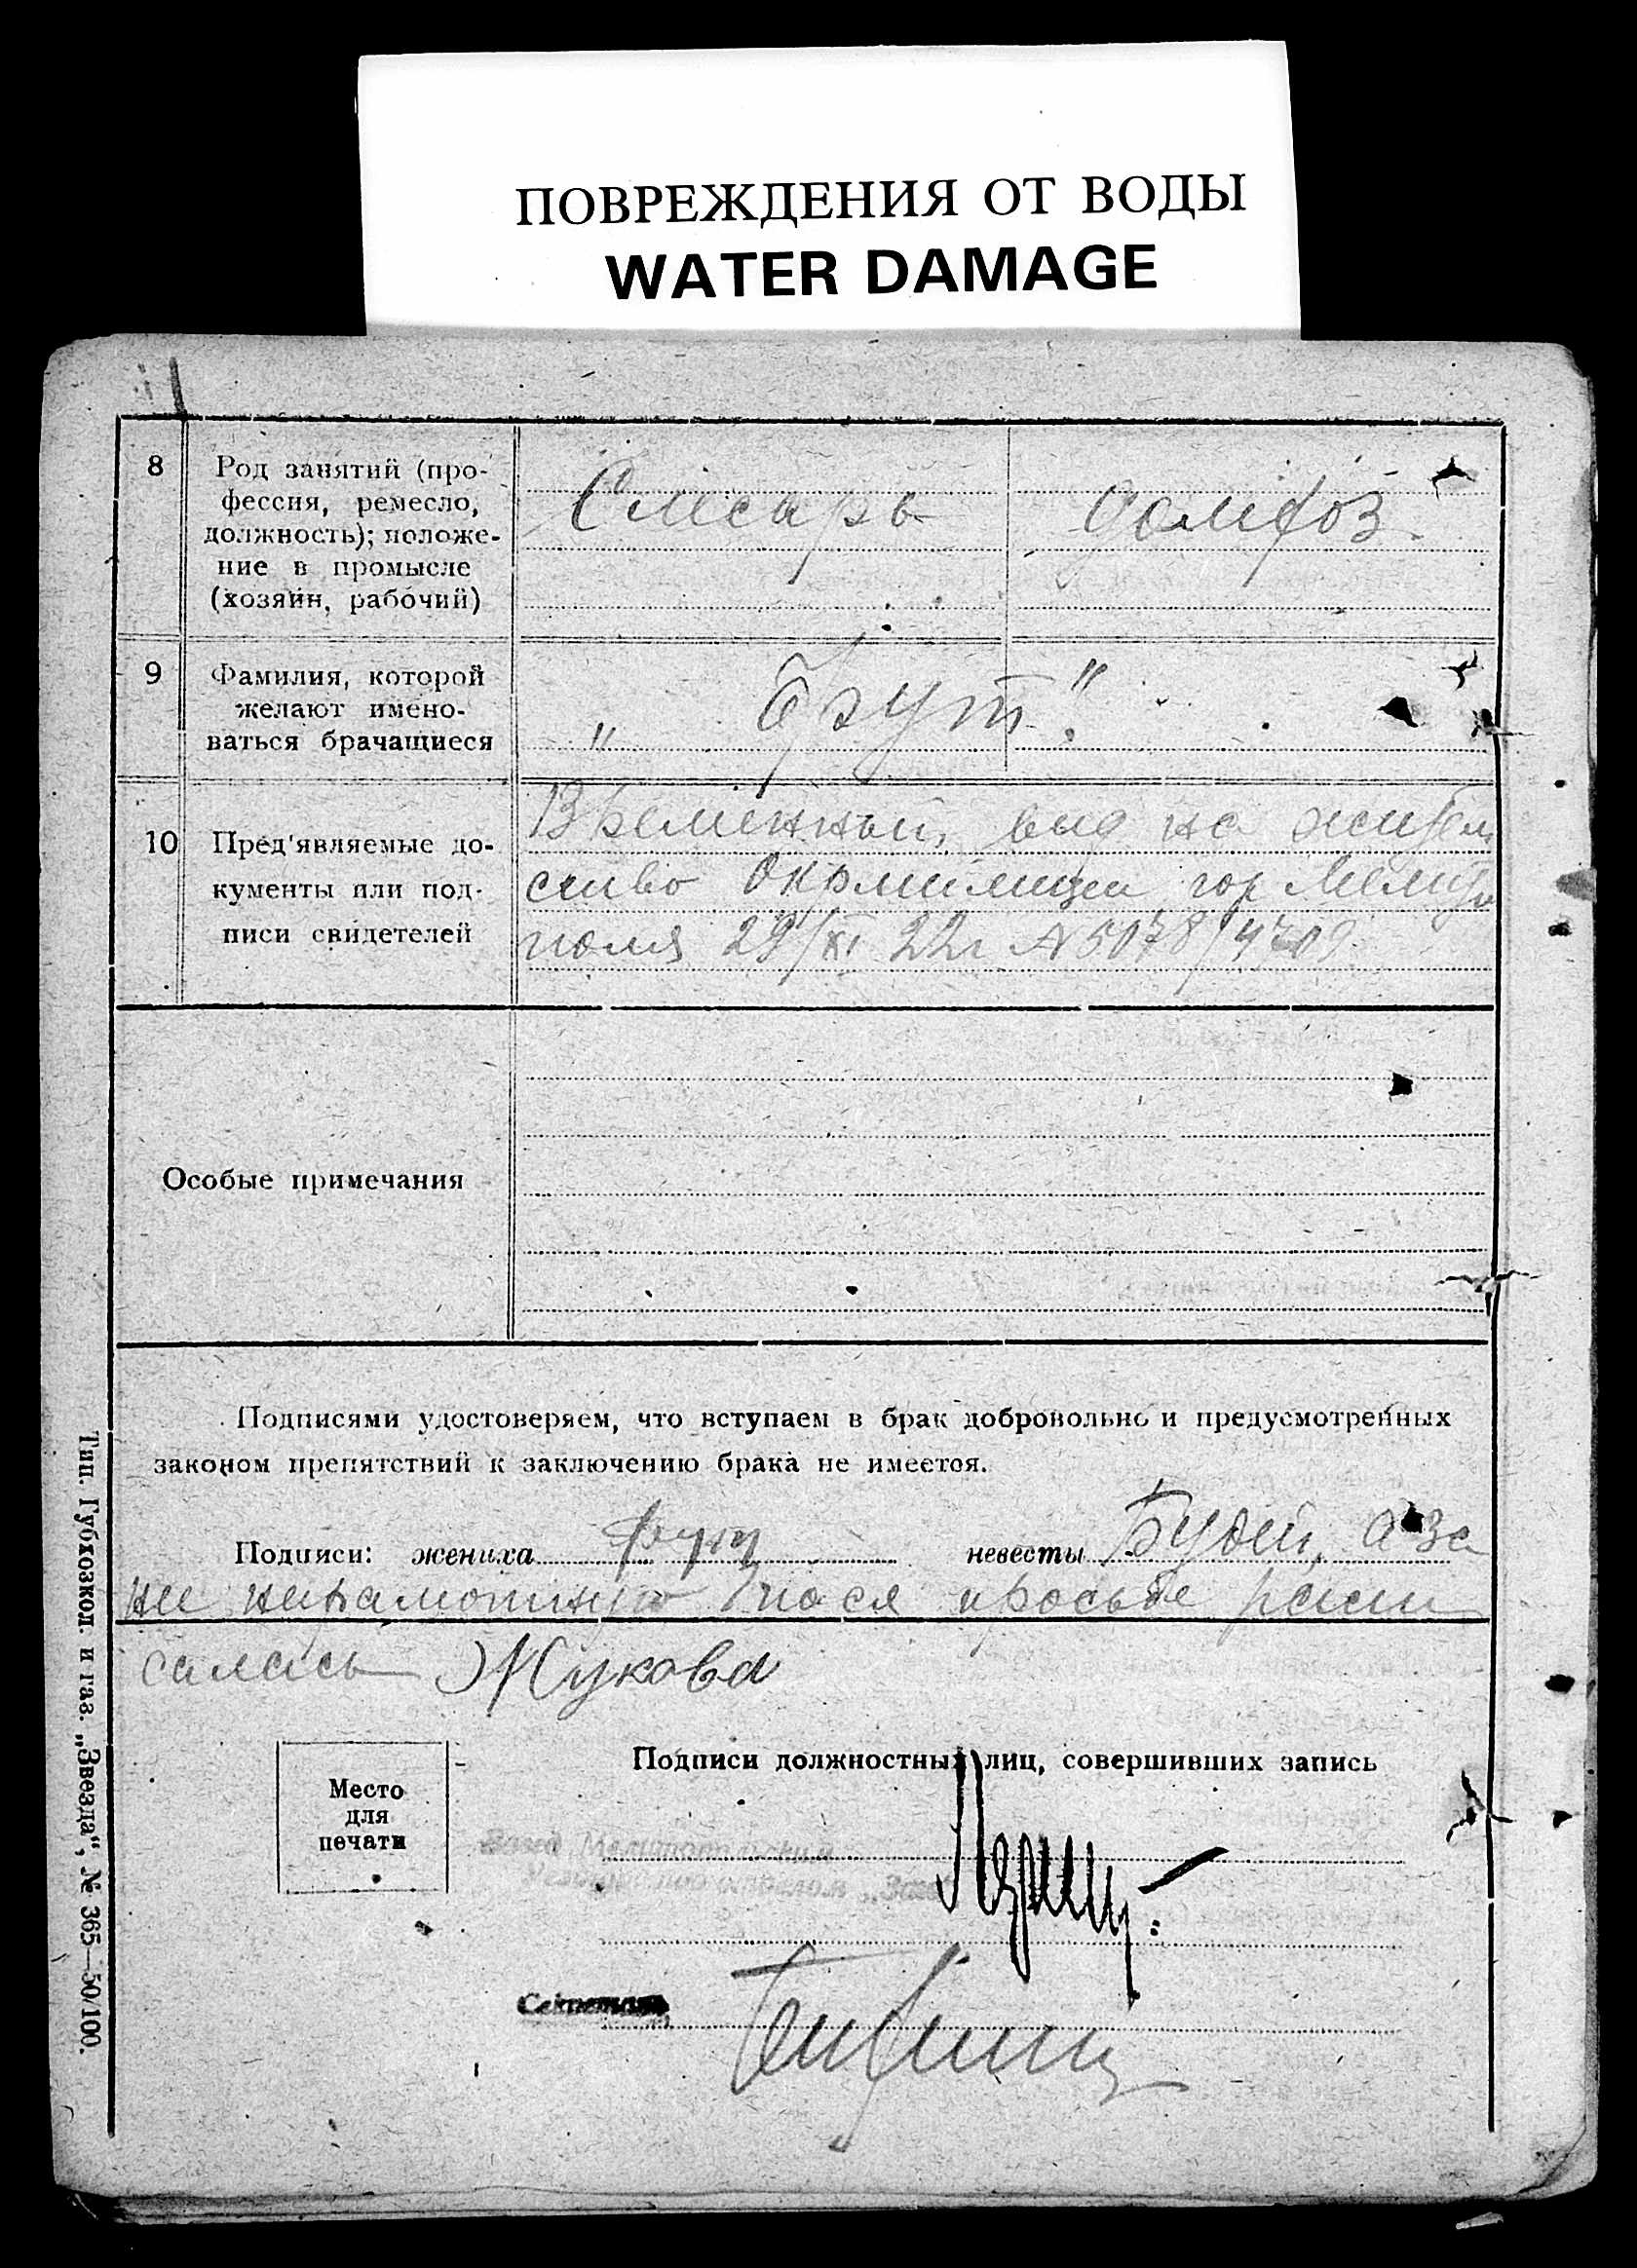 ПОВРЕЖДЕНИЯ ОТ ВОДЫ
WATER DAMAGE
8
Род занятий (про-
фессия, ремесло,
должность); положе-
ние в промысле
(хозяин, рабочий)
Слесарь
домхоз
9
Фамилия, которой
желают имено-
ваться брачащиеся
„ Бзут "
10
Пред'являемые до-
кументы или под-
писи свидетелей
Временный вид на житель
ство Окрмилиции гор Мелито
поля 29/XI 22г № 5078/4709
Особые примечания
Подписями удостоверяем, что вступаем в брак добровольно и предусмотренных
законом препятствий к заключению брака не имеется.
Подписи: жениха невесты Будей, а за
не неграмотную просьбе распи
салась Жукова
Место
для
печати
Подписи должностных лиц, совершивших запись
Секретарь
Тип. Губхозкол. и газ. „Звезда", № 365—50/100.